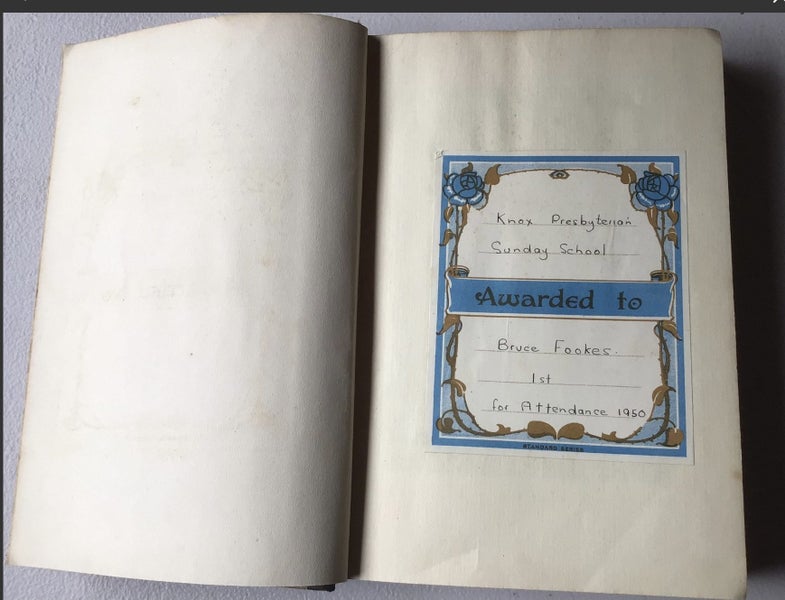 Knox Presbyterian
Sunday School
Awarded to
Bruce Fookes.
1st
for Attendance 1950
STANDARD SERIES